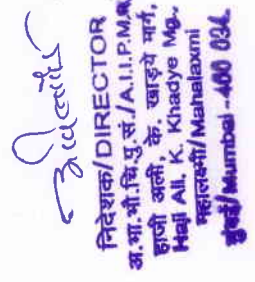 निदेशक/DIRECTOR
अ.भा.भौ.चि.पु.सं./A.I.I.P.M.R
हाजी अली, के. खाड्ये मार्ग,
Haji Ali, K. Khadye Mg.,
महालक्ष्मी/Mahalaxmi
मुंबई/Mumbai-400 034.